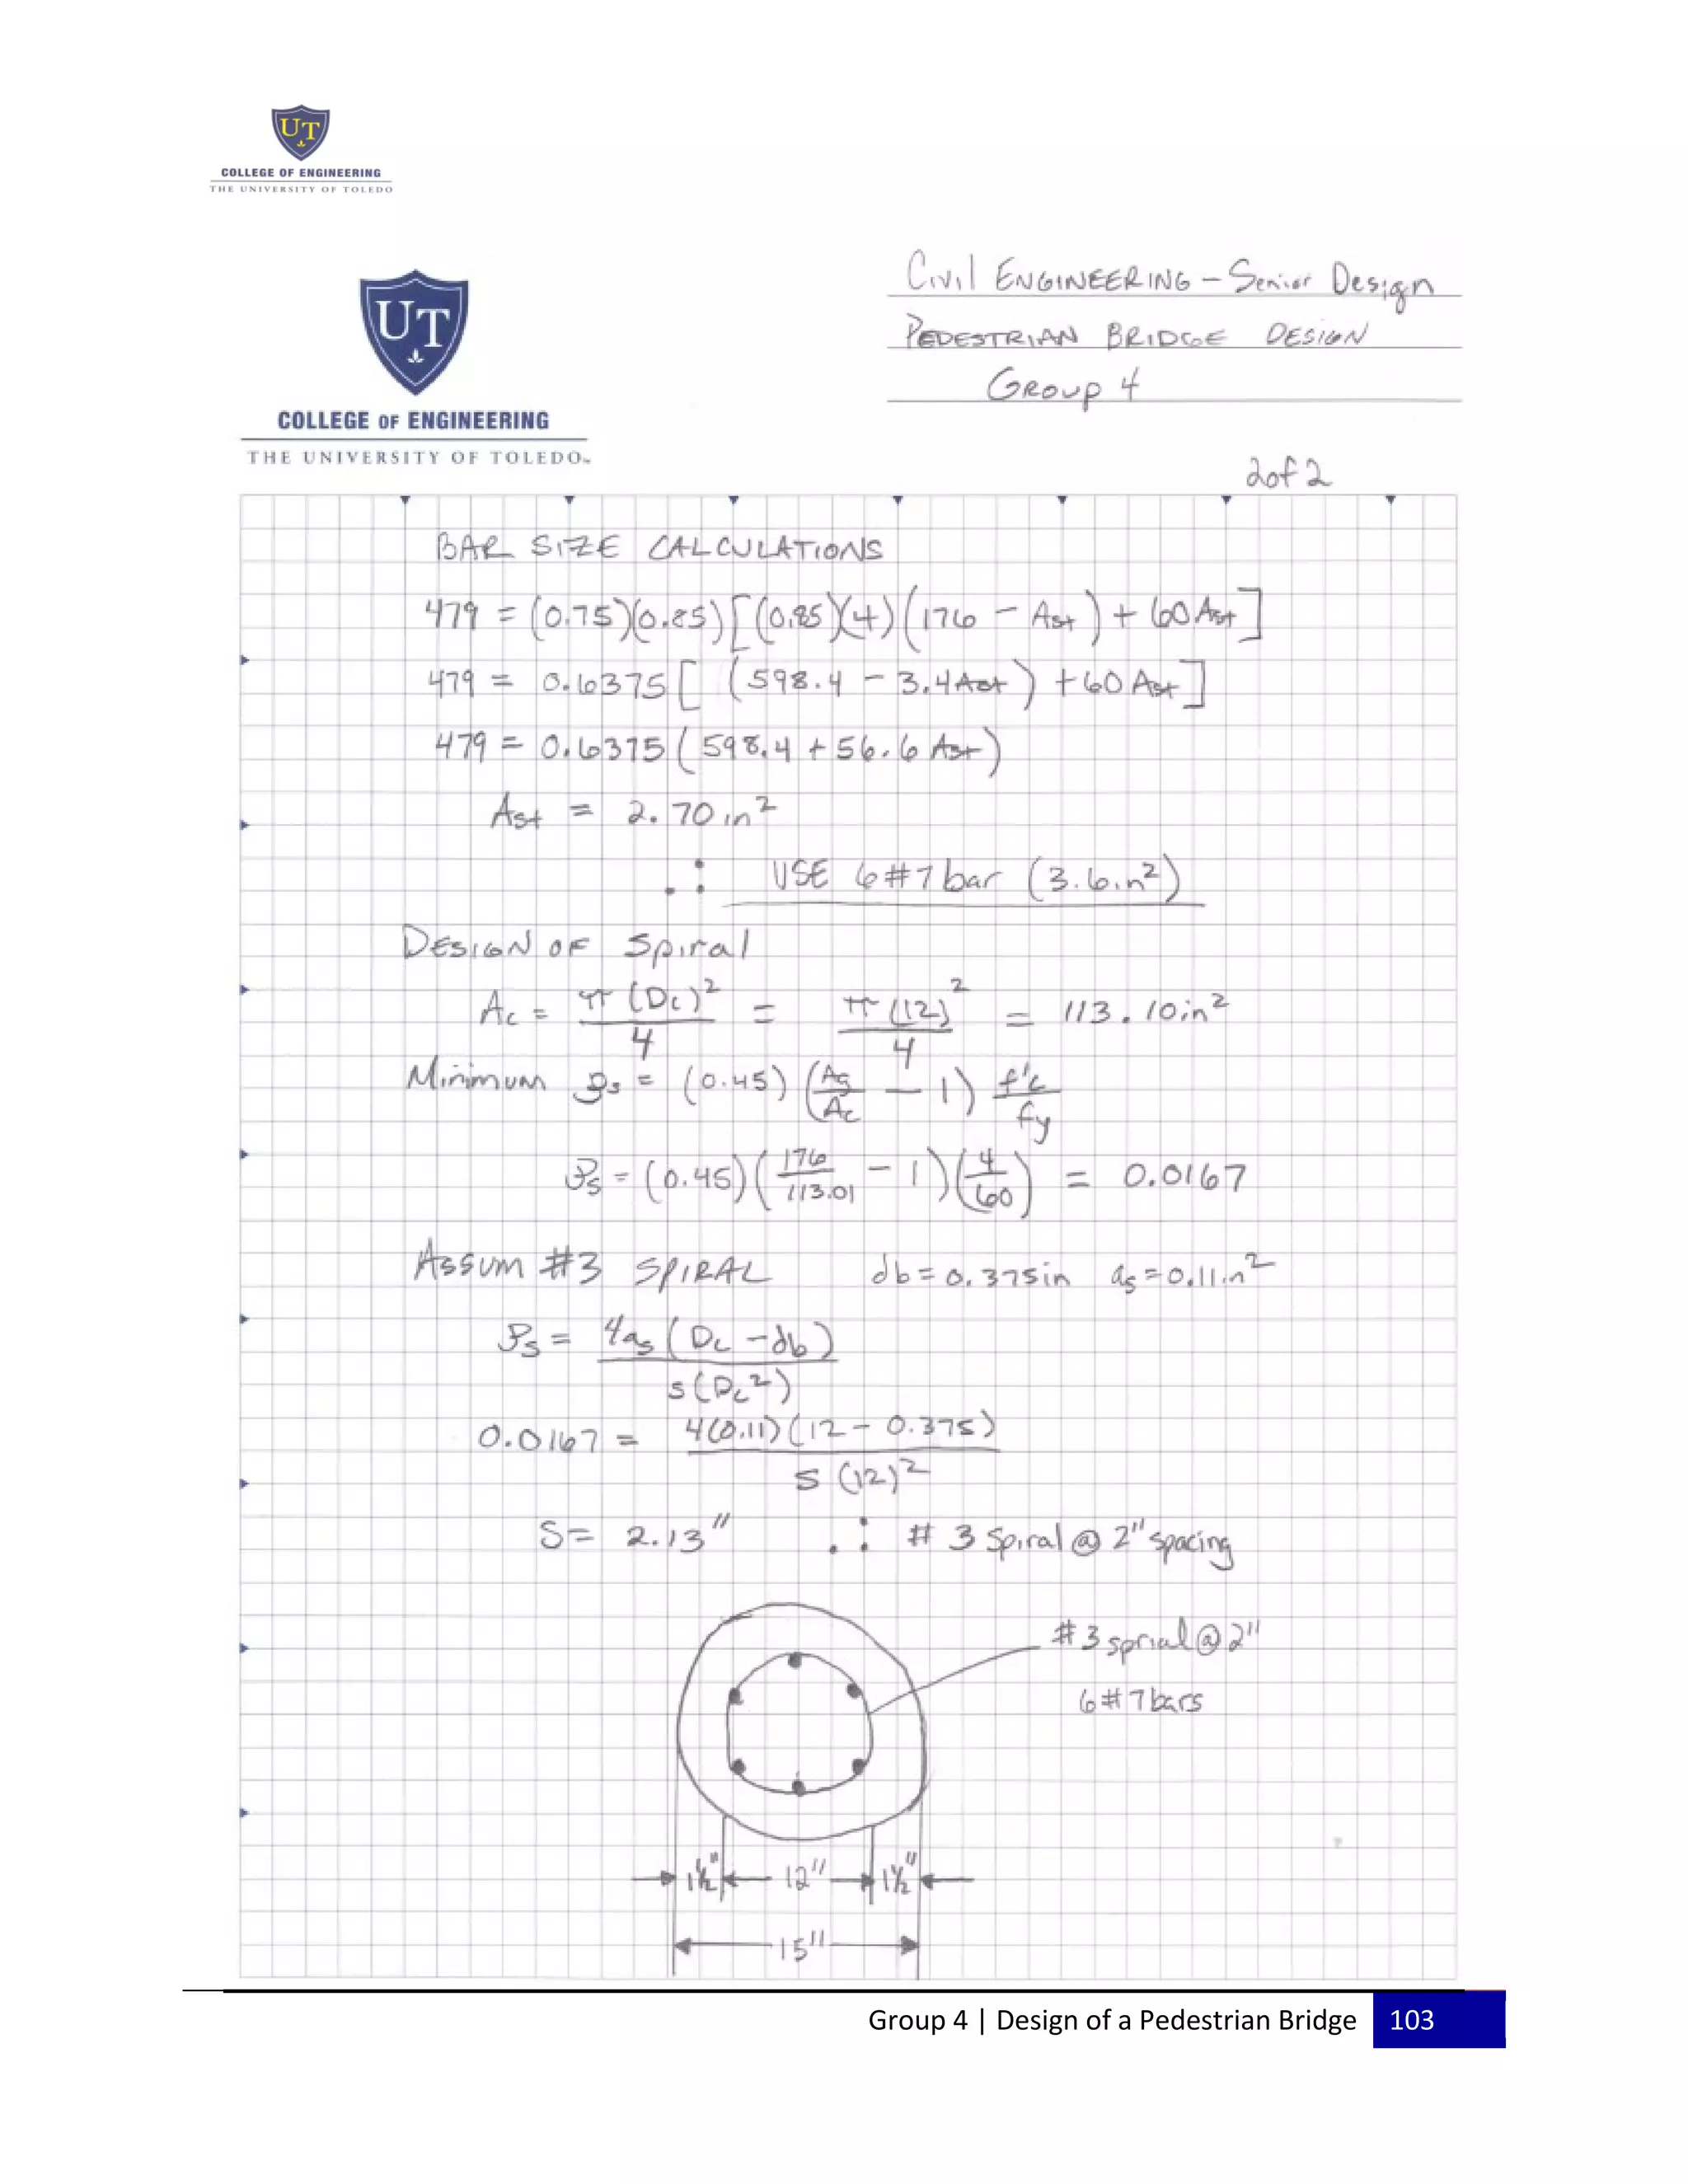 UT
COLLEGE OF ENGINEERING
THE UNIVERSITY OF TOLEDO
UT
COLLEGE OF ENGINEERING
THE UNIVERSITY OF TOLEDO
Civil ENGINEERING - Senior Design
PEDESTRIAN BRIDGE DESIGN
GROUP 4
2 of 2
BAR SIZE CALCULATIONS
479 = (0.75)(0.85)[(0.85)(4)(176 - Ast) + 60 Ast]
479 = 0.6375[(598.4 - 3.4Ast) + 60 Ast]
479 = 0.6375(598.4 + 56.6 Ast)
Ast = 2.70 in²
∴ USE 6#7 bar (3.6in²)
DESIGN OF Spiral
Ac = π(Dc)²/4 = π(12)²/4 = 113.10in²
Minimum ρs = (0.45)(Ag/Ac - 1) f'c/fy
ρs = (0.45)(176/113.01 - 1)(4/60) = 0.0167
Assum #3 SPIRAL db = 0.375in as = 0.11in²
ρs = 4as(Dc - db)/s(Dc²)
0.0167 = 4(0.11)(12 - 0.375)/s(12)²
S = 2.13" ∴ #3 Spiral @ 2" spacing
#3 sprial @ 2"
6#7 bars
1½" 12" 1½"
15"
Group 4 | Design of a Pedestrian Bridge 103